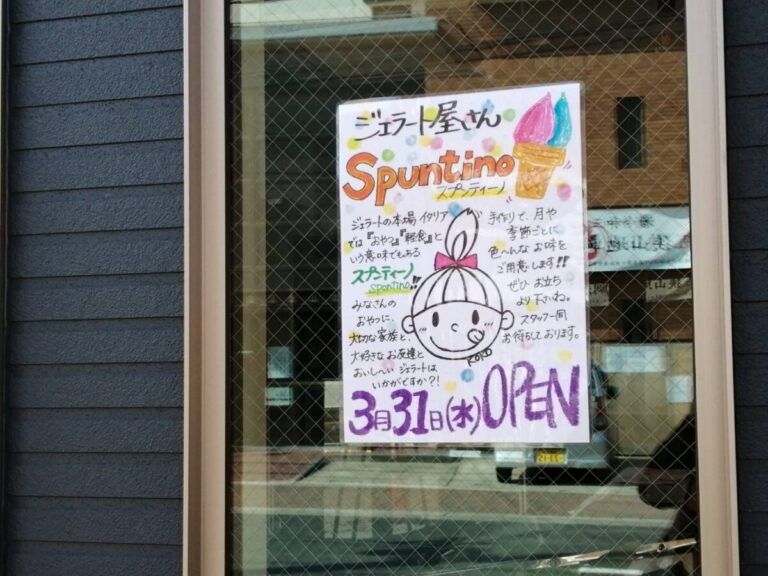 ジェラート屋さん
Spuntino
スプンティーノ
ジェラートの本場イタリア
では『おやつ』『軽食』と
いう意味でもある
スプンティーノ!!
spuntino
みなさんの
おやつに、
大切な家族と、
大好きなお友達と
おいし〜い ジェラートは
いかがですか?!
手作りで、月や
季節ごとに
色〜んな お味を
ご用意します!!
ぜひ お立ち
より下さいね。
スタッフ一同
お待ちしております。
KOKO
3月31日(水)OPEN